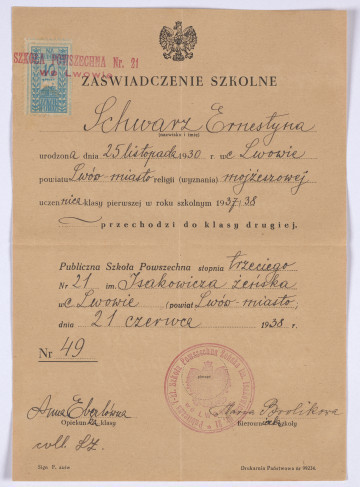 SZKOŁA POWSZECHNA Nr. 21
we Lwowie
ZAŚWIADCZENIE SZKOLNE
Schwarz Ernestyna
(nazwisko i imię)
urodzona dnia 25 listopada 1930 r. we Lwowie
powiatu Lwów-miasto religii (wyznania) mojżeszowej
uczennica klasy pierwszej w roku szkolnym 1937/38
przechodzi do klasy drugiej.
Publiczna Szkoła Powszechna stopnia trzeciego
Nr 21 im. Isakowicza żeńska
we Lwowie (powiat Lwów-miasto)
dnia 21 czerwca 1938 r.
Nr 49
Opiekun klasy
Kierownik szkoły
Drukarnia Państwowa nr 99234.